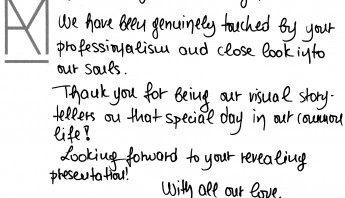 We have been genuinely touched by your
professionalism and close look into
our souls.
Thank you for being our visual story-
tellers on that special day in our common
life!
Looking forward to your revealing
presentation!
With all our love,